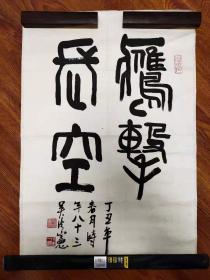 鷹擊
長空
丁丑年
春月時
年八十三
吴